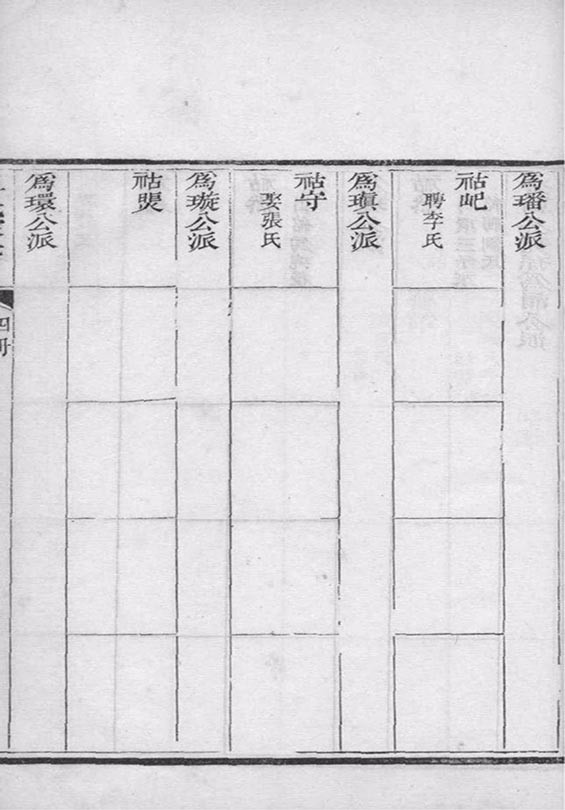 為璠公派
祜屺
聘李氏
為瑱公派
祜守
娶張氏
為璇公派
祜煚
為環公派
四冊